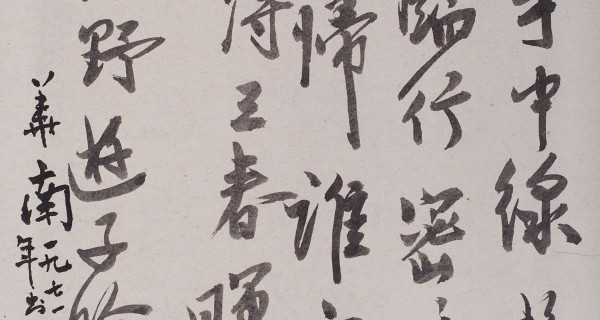 手中線
臨行密
歸誰
得三春暉
野遊子吟
華南一九七一年書